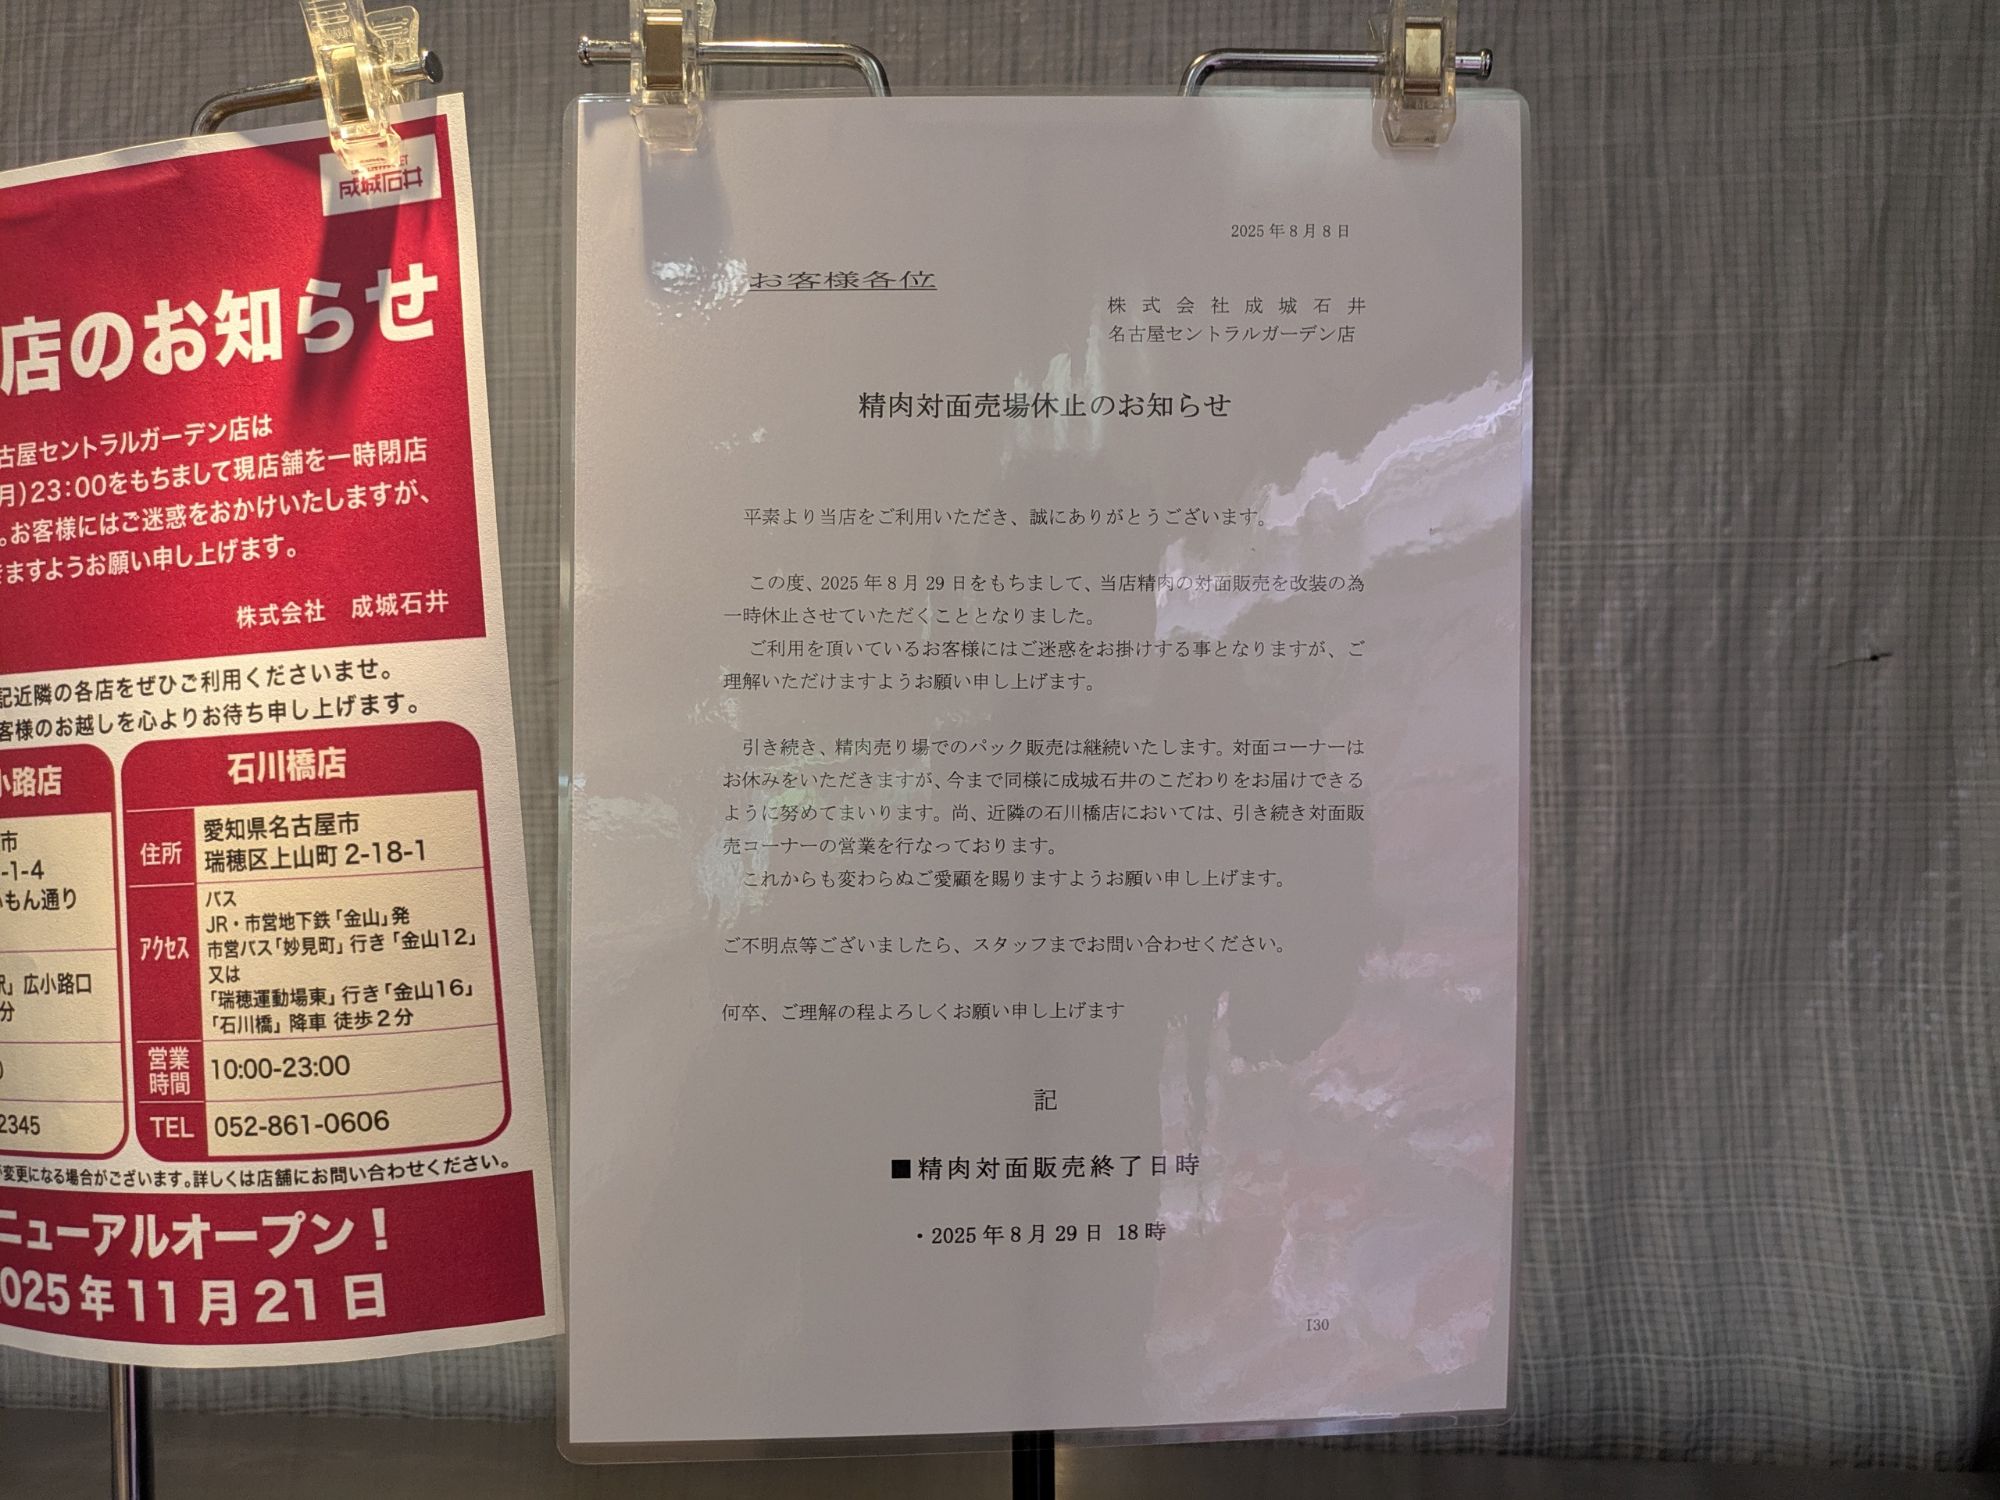 成城石井
店のお知らせ
古屋セントラルガーデン店は
月)23:00をもちまして現店舗を一時閉店
。お客様にはご迷惑をおかけいたしますが、
きますようお願い申し上げます。
株式会社 成城石井
記近隣の各店をぜひご利用くださいませ。
客様のお越しを心よりお待ち申し上げます。
小路店
市
-1-4
もん通り
駅」広小路口
分
2345
石川橋店
住所
愛知県名古屋市
瑞穂区上山町 2-18-1
アクセス
バス
JR・市営地下鉄「金山」発
市営バス「妙見町」行き「金山12」
又は
「瑞穂運動場東」行き「金山16」
「石川橋」降車 徒歩2分
営業時間
10:00-23:00
TEL
052-861-0606
変更になる場合がございます。詳しくは店舗にお問い合わせください。
ニューアルオープン!
2025年11月21日
2025年8月8日
お客様各位
株式会社成城石井
名古屋セントラルガーデン店
精肉対面売場休止のお知らせ
平素より当店をご利用いただき、誠にありがとうございます。
この度、2025年8月29日をもちまして、当店精肉の対面販売を改装の為
一時休止させていただくこととなりました。
ご利用を頂いているお客様にはご迷惑をお掛けする事となりますが、ご
理解いただけますようお願い申し上げます。
引き続き、精肉売り場でのパック販売は継続いたします。対面コーナーは
お休みをいただきますが、今まで同様に成城石井のこだわりをお届けできる
ように努めてまいります。尚、近隣の石川橋店においては、引き続き対面販
売コーナーの営業を行なっております。
これからも変わらぬご愛顧を賜りますようお願い申し上げます。
ご不明点等ございましたら、スタッフまでお問い合わせください。
何卒、ご理解の程よろしくお願い申し上げます
記
■精肉対面販売終了日時
・2025年8月29日 18時
I30